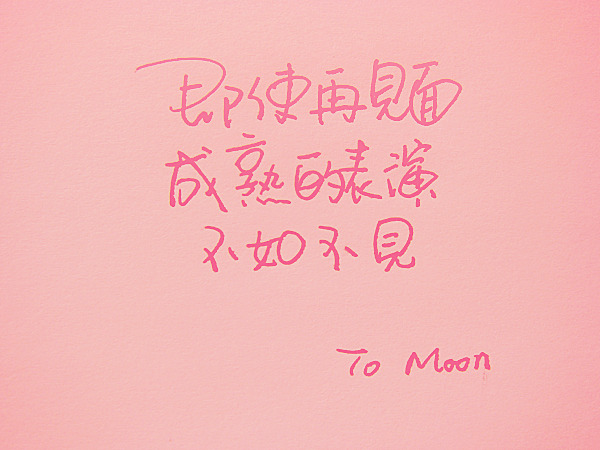 即使再見面
成熟的表演
不如不見
To Moon